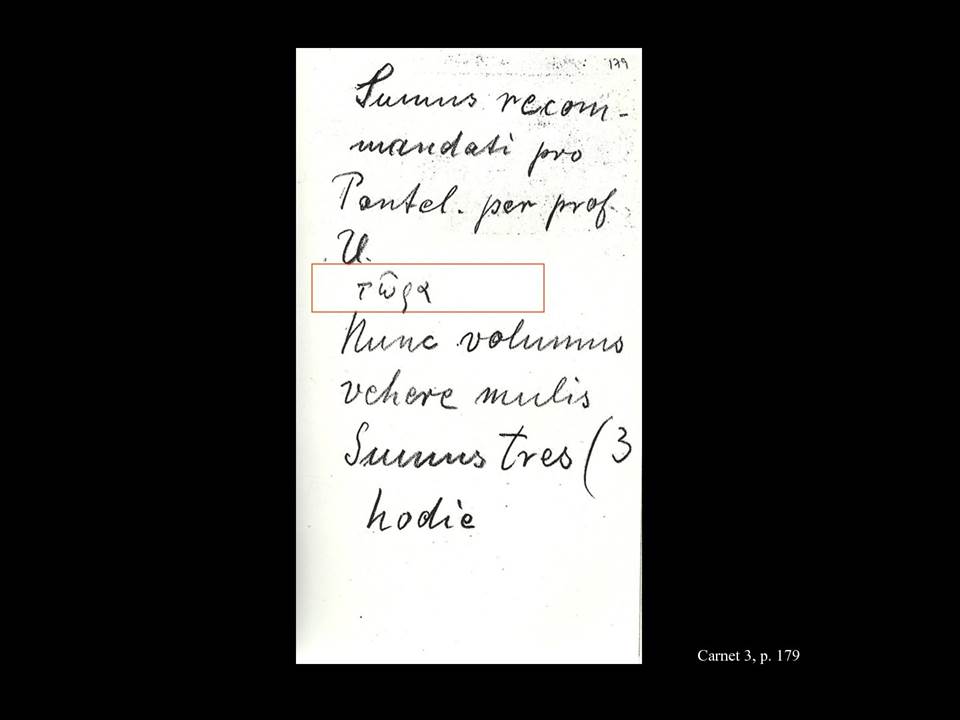 179
Sumus recom-
mandati pro
Pantel. per prof.
U.
τῶρα
Nunc volumus
vehere mulis
Sumus tres (3
hodie
Carnet 3, p. 179